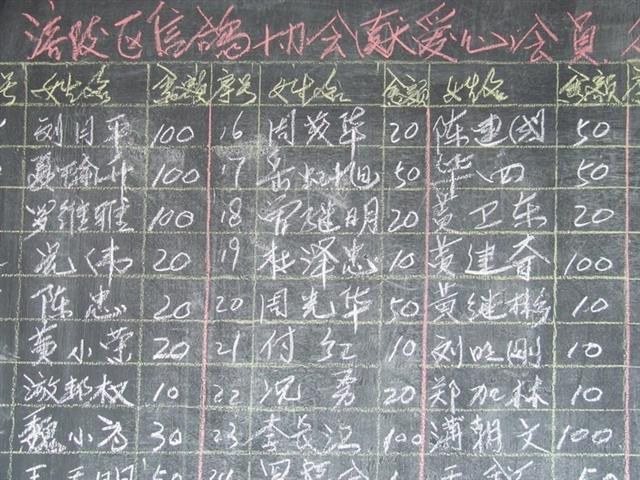 涪陵区信鸽协会献爱心会员
号 姓名 金额 序号 姓名 金额 姓名 金额
刘日平 100 16 周茂华 20 陈建国 50
100 17 50 华四 50
罗维雅 100 18 曾继明 20 黄卫东 20
伟 20 19 杜泽忠 10 黄建香 100
陈忠 20 20 周光华 50 黄继 10
黄小荣 20 21 付红 10 刘明刚 10
权 10 22 况勇 20 郑加林 10
魏小 30 23 李长江 100 蒲朝文 100